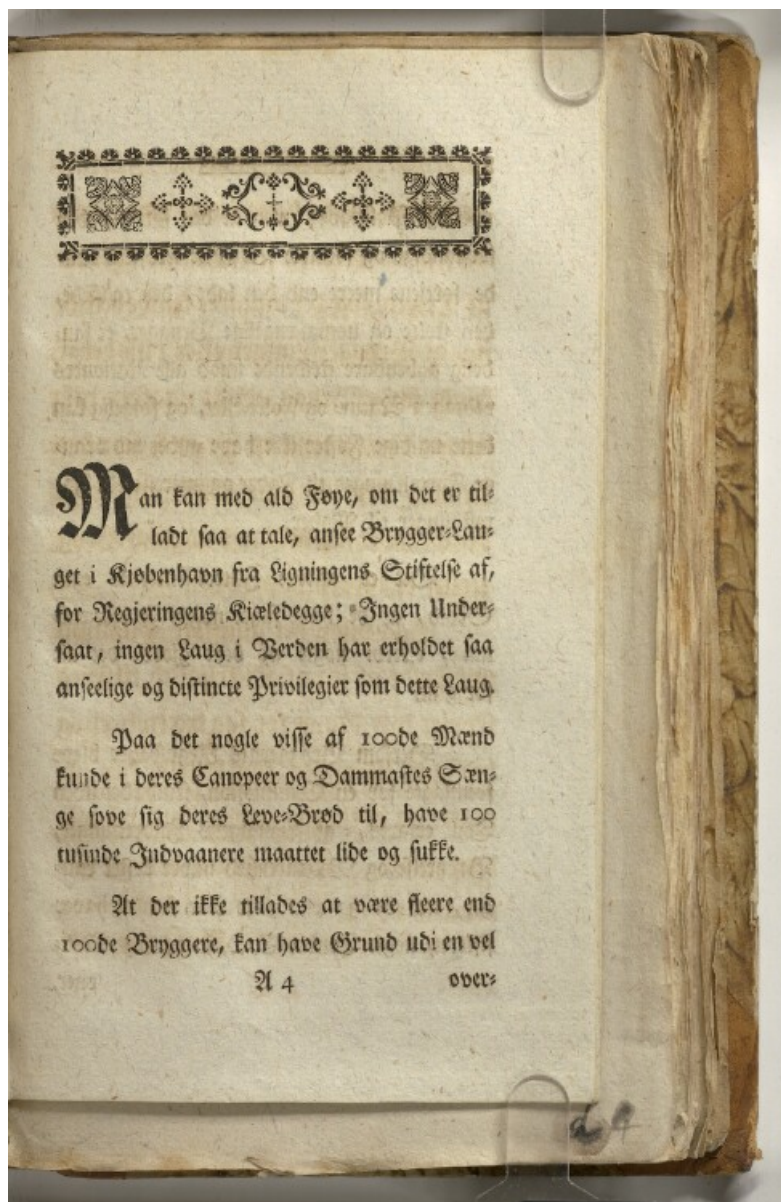 Man kan med ald Føye, om det er til-
ladt saa at tale, ansee Brygger-Lau-
get i Kjøbenhavn fra Ligningens Stiftelse af,
for Regjeringens Kiæledegge; Ingen Under-
saat, ingen Laug i Verden har erholdet saa
anseelige og distincte Privilegier som dette Laug.
Paa det nogle visse af 100de Mænd
kunde i deres Canopeer og Dammastes Sæn-
ge sove sig deres Leve-Brød til, have 100
tusinde Indvaanere maattet lide og sukke.
At der ikke tillades at være fleere end
100de Bryggere, kan have Grund udi en vel
A 4 over-